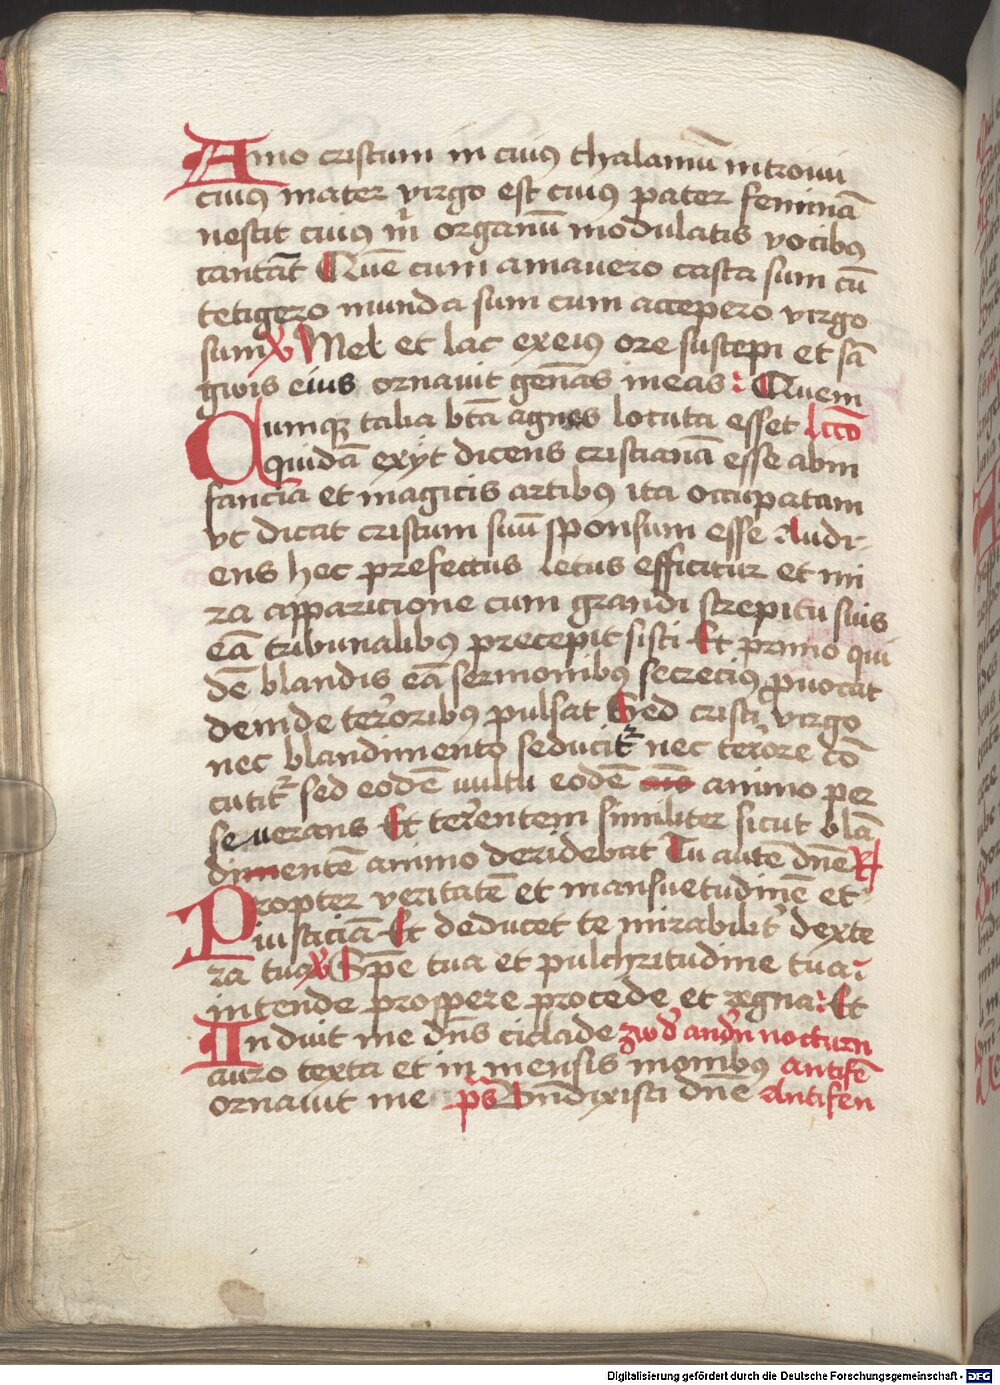 Amo cristum in cuiꝰ thalamū introiui
cuiꝰ mater virgo est cuiꝰ pater feminā
nescit cuiꝰ m̄ organū modulatis vocibꝰ
cantāt Quē cum amauero casta sum cū
tetigero munda sum cum accepero virgo
sum ℣ Mel et lac ex eiꝰ ore suscepi et sā
gwis eius ornauit genas meas : Quem
Cumqꝫ talia btā agnes locuta esset lcco
quidā exÿt dicens cristianā esse ab in
fancia et magicis artibꝰ ita occupatam
vt dicat cristum suū sponsum esse Audi-
ens hec prefectus letus efficitur et mi
ra apparicione cum grandi strepitu suis
eā tribunalibꝰ precepit sisti Et primo qui
dē blandis eā sermonibꝰ secreciꝰ ꝓuocat
deinde terroribꝰ pulsat Sed cristi virgo
nec blandimento seducitr nec terrore cō
cutitr sed eodē uultu eodē animo per
seuerans Et terrentem similiter sicut blā
dientē animo deridebat Tu autē dnē ℟
Propter veritatē et mansuetudinē et
iusticiā Et deducet te mirabilit dexte
ra tua ℣ Spē tua et pulchritudine tua :
intende prospere procede et regna : Et
Induit me dn̄s ciclade zw dˀ andˀn nocturn
auro texta et in mensis monibꝰ antifē
ornauit me p̄s Bn̄dixisti dn̄e Antifen
Digitalisierung gefördert durch die Deutsche Forschungsgemeinschaft - DFG